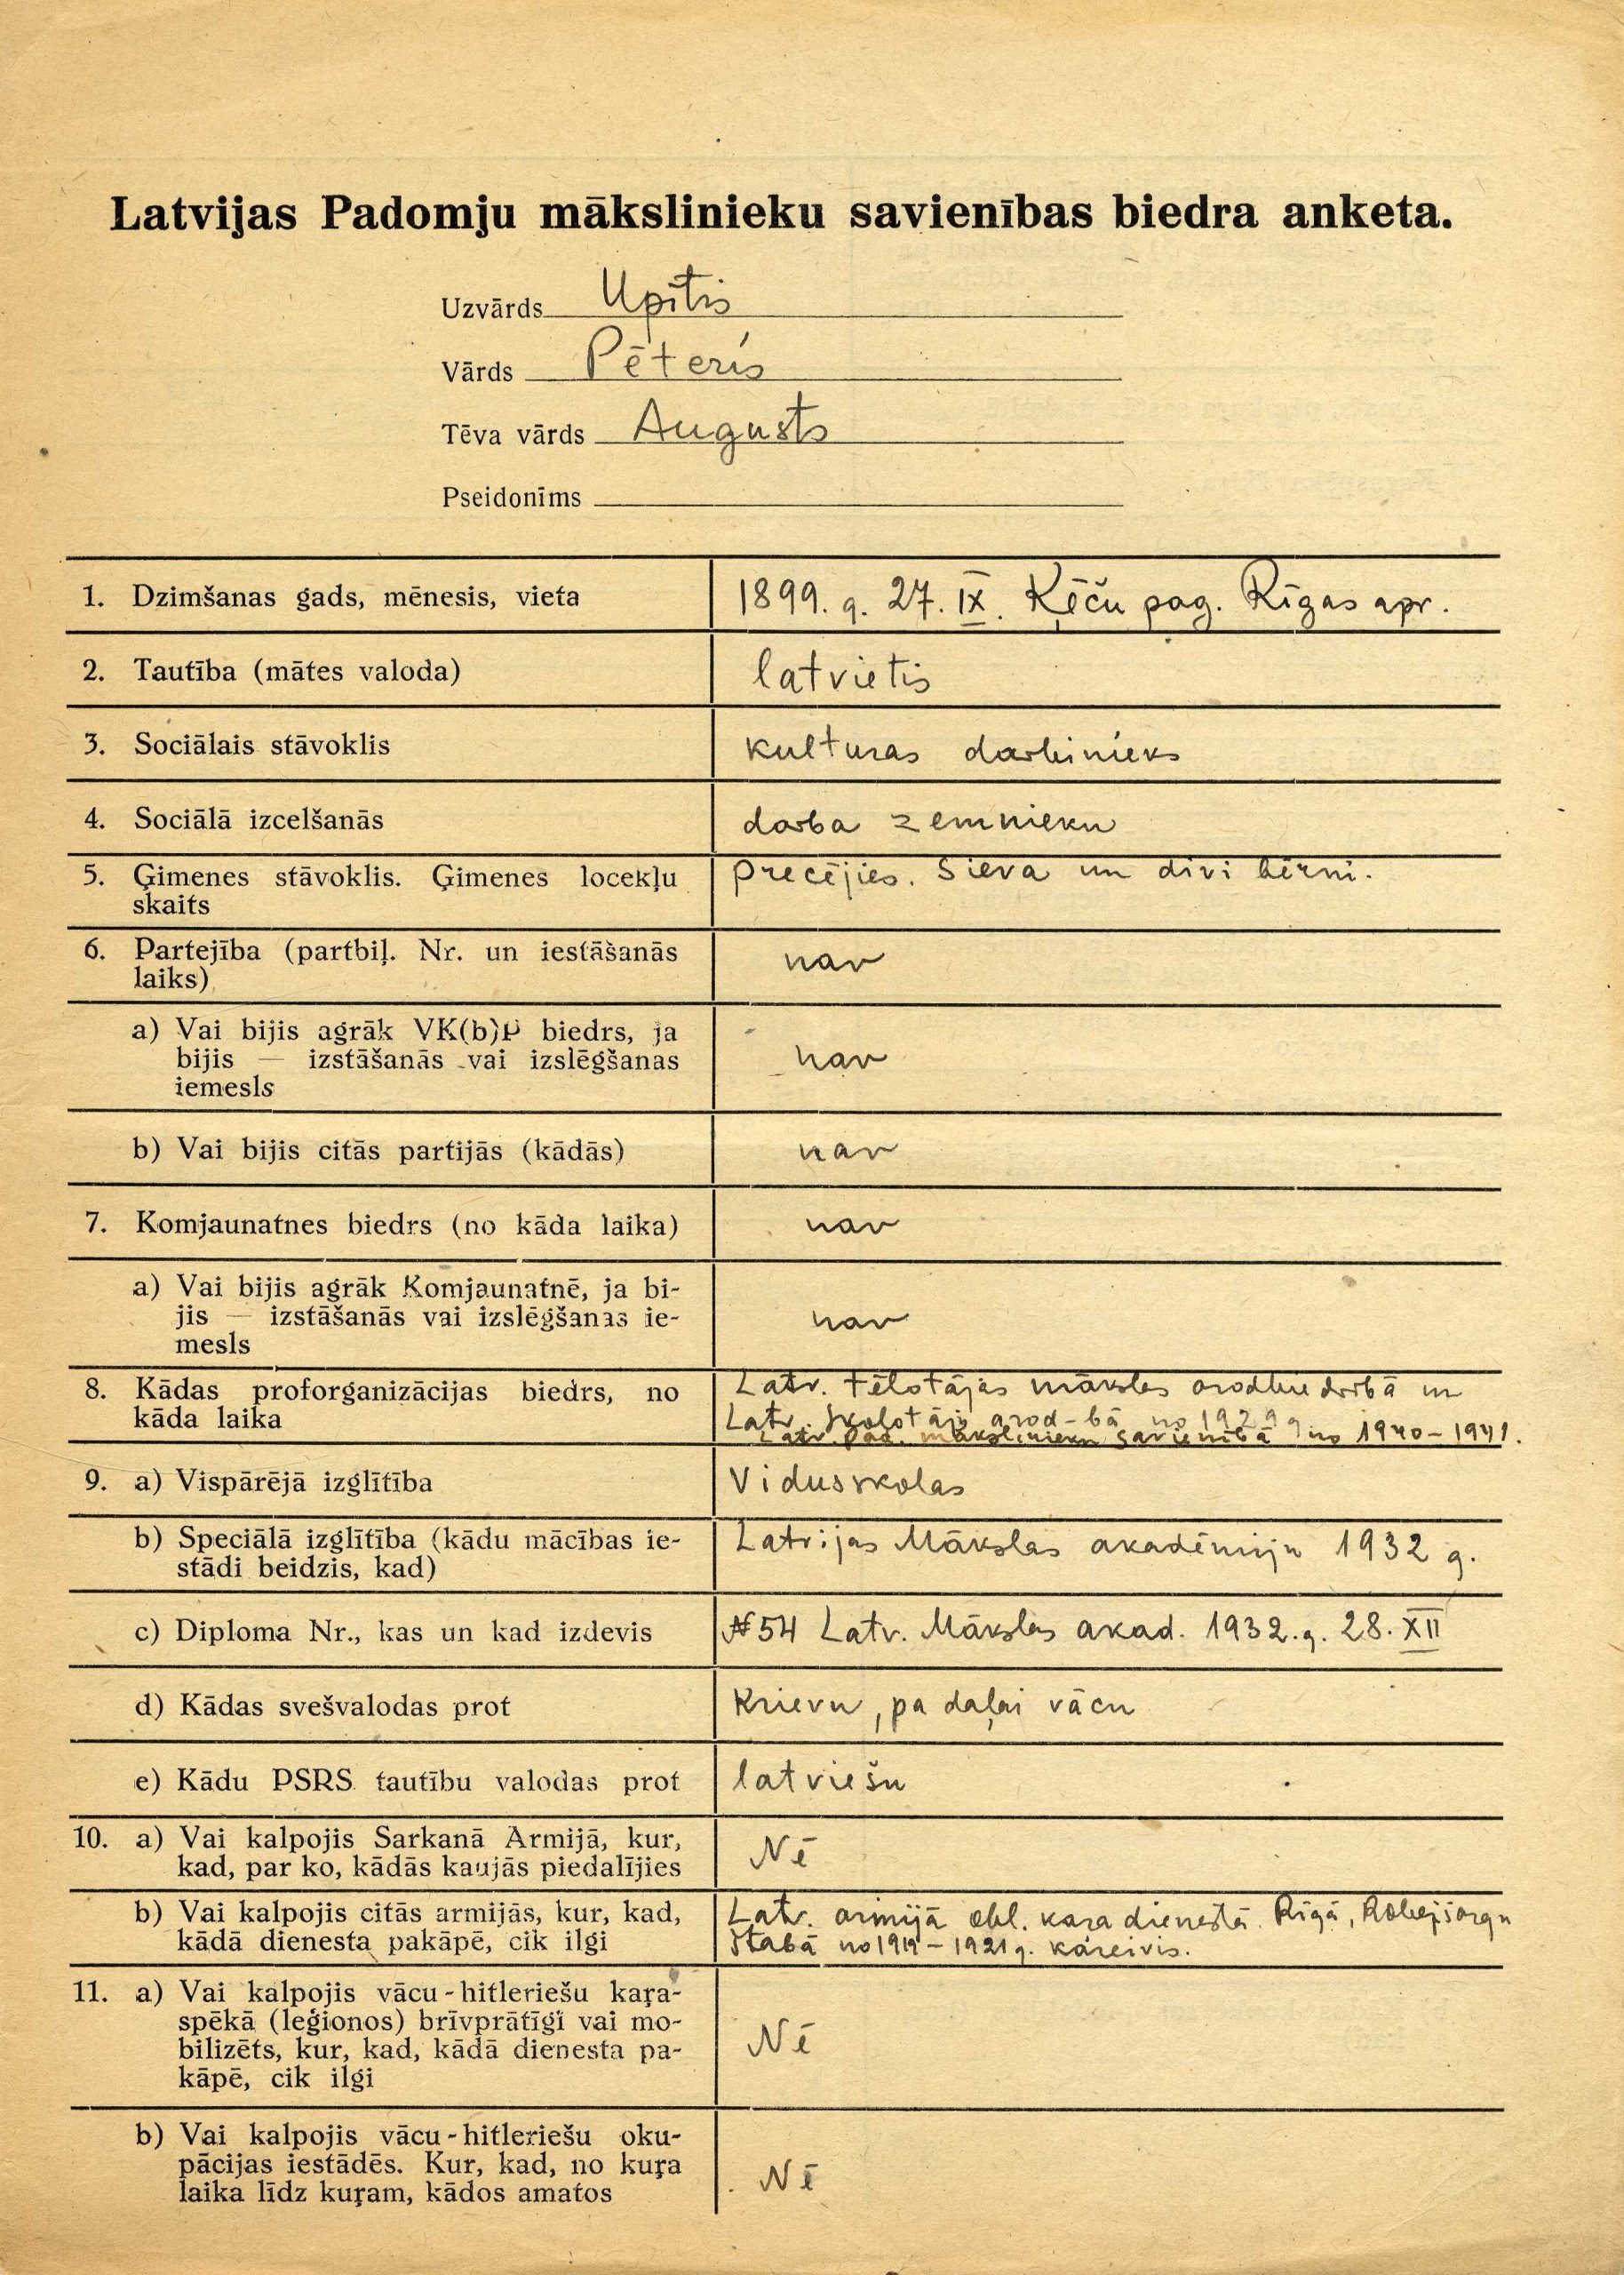 Latvijas Padomju mākslinieku savienības biedra anketa.
Uzvārds Upītis
Vārds Pēteris
Tēva vārds Augusts
Pseidonīms
1. Dzimšanas gads, mēnesis, vieta 1899. g. 27. IX. Ķēču pag. Rīgas apr.
2. Tautība (mātes valoda) latvietis
3. Sociālais stāvoklis kulturas darbinieks
4. Sociālā izcelšanās darba zemnieku
5. Ģimenes stāvoklis. Ģimenes locekļu precējies. Sieva un divi bērni.
skaits
6. Partejība (partbiļ. Nr. un iestāšanās nav
laiks)
a) Vai bijis agrāk VK(b)P biedrs, ja
bijis — izstāšanās vai izslēgšanas nav
iemesls
b) Vai bijis citās partijās (kādās) nav
7. Komjaunatnes biedrs (no kāda laika) nav
a) Vai bijis agrāk Komjaunatnē, ja bi-
jis — izstāšanās vai izslēgšanas ie- nav
mesls
8. Kādas proforganizācijas biedrs, no Latv. tēlotājas mākslas arodbiedrībā un
kāda laika Latv. skolotāju arod-bā no 1929 g
Latv. Pad. mākslinieku savienībā no 1940-1941.
9. a) Vispārējā izglītība Vidusskolas
b) Speciālā izglītība (kādu mācības ie- Latvijas Mākslas akadēmiju 1932 g.
stādi beidzis, kad)
c) Diploma Nr., kas un kad izdevis № 54 Latv. Mākslas akad. 1932. g. 28. XII
d) Kādas svešvalodas prot Krievu, pa daļai vācu
e) Kādu PSRS tautību valodas prot latviešu
10. a) Vai kalpojis Sarkanā Armijā, kur, Nē
kad, par ko, kādās kaujās piedalījies
b) Vai kalpojis citās armijās, kur, kad, Latv. armijā obl. kara dienestā. Rīgā, Robežsargu
kādā dienesta pakāpē, cik ilgi štabā no - 1921 g. kareivis.
11. a) Vai kalpojis vācu-hitleriešu kaŗa-
spēkā (leģionos) brīvprātīgi vai mo-
bilizēts, kur, kad, kādā dienesta pa- Nē
kāpē, cik ilgi
b) Vai kalpojis vācu-hitleriešu oku-
pācijas iestādēs. Kur, kad, no kuŗa Nē
laika līdz kuŗam, kādos amatos